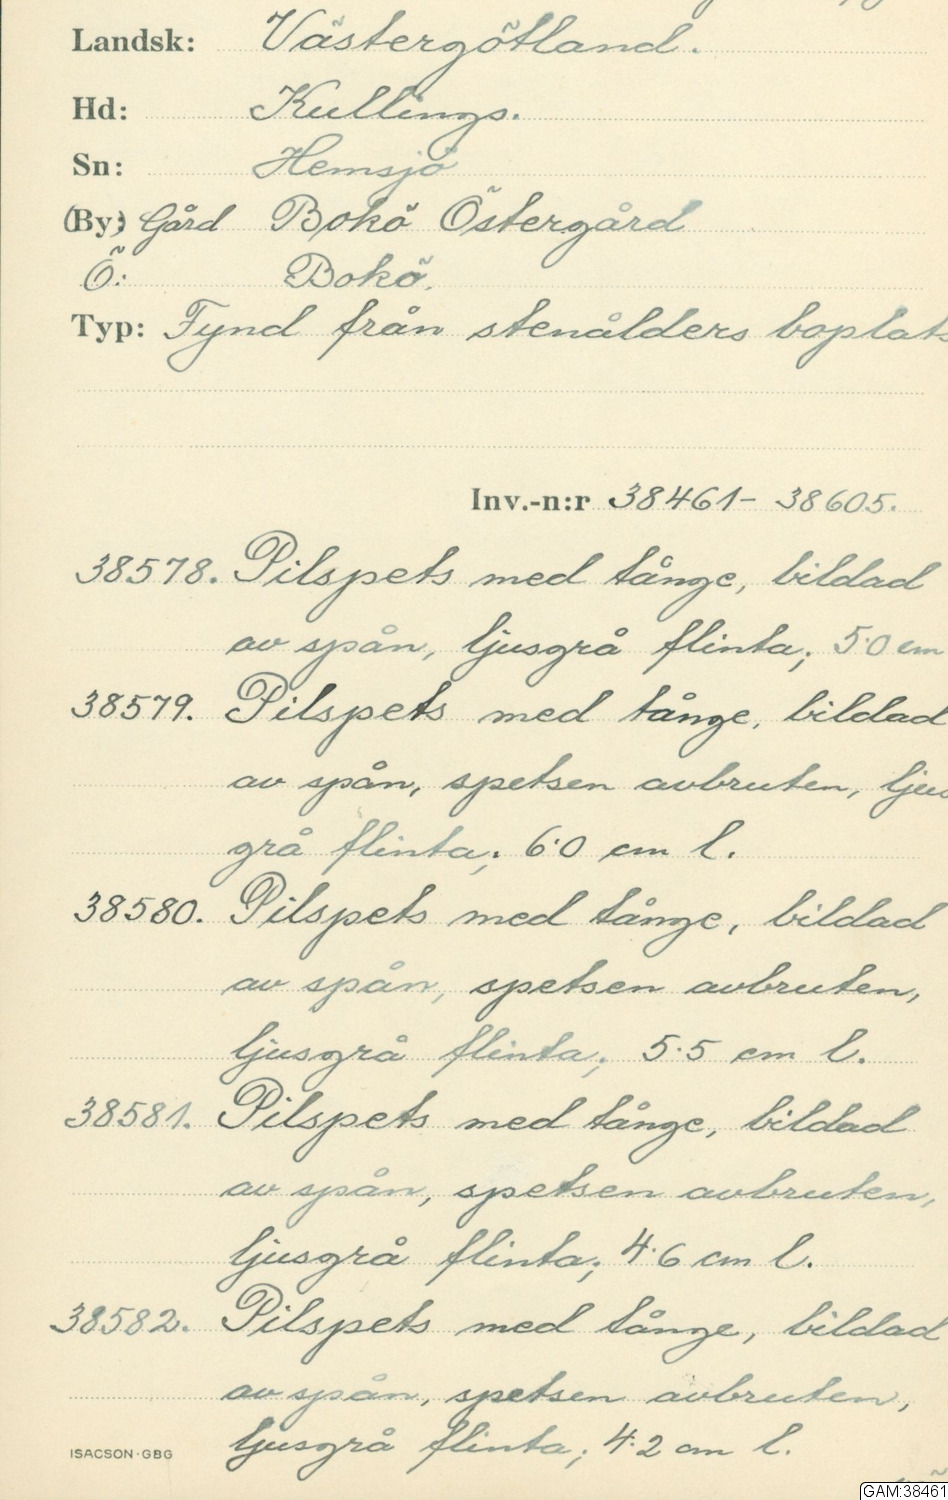 Landsk: Västergötland.
Hd: Kullings.
Sn: Hemsjö
(By) Gård Bokö Östergård
Ö: Bokö.
Typ: Fynd från stenålders boplats
Inv.-n:r 38461- 38605.
38578. Pilspets med tånge, bildad
av spån, ljusgrå flinta; 5.0 cm
38579. Pilspets med tånge, bildad
av spån, spetsen avbruten, ljus
grå flinta; 6.0 cm l.
38580. Pilspets med tånge, bildad
av spån, spetsen avbruten,
ljusgrå flinta; 5.5 cm l.
38581. Pilspets med tånge, bildad
av spån, spetsen avbruten,
ljusgrå flinta; 4.6 cm l.
38582. Pilspets med tånge, bildad
av spån, spetsen avbruten,
ljusgrå flinta; 4.2 cm l.
ISACSON·GBG
GAM:38461